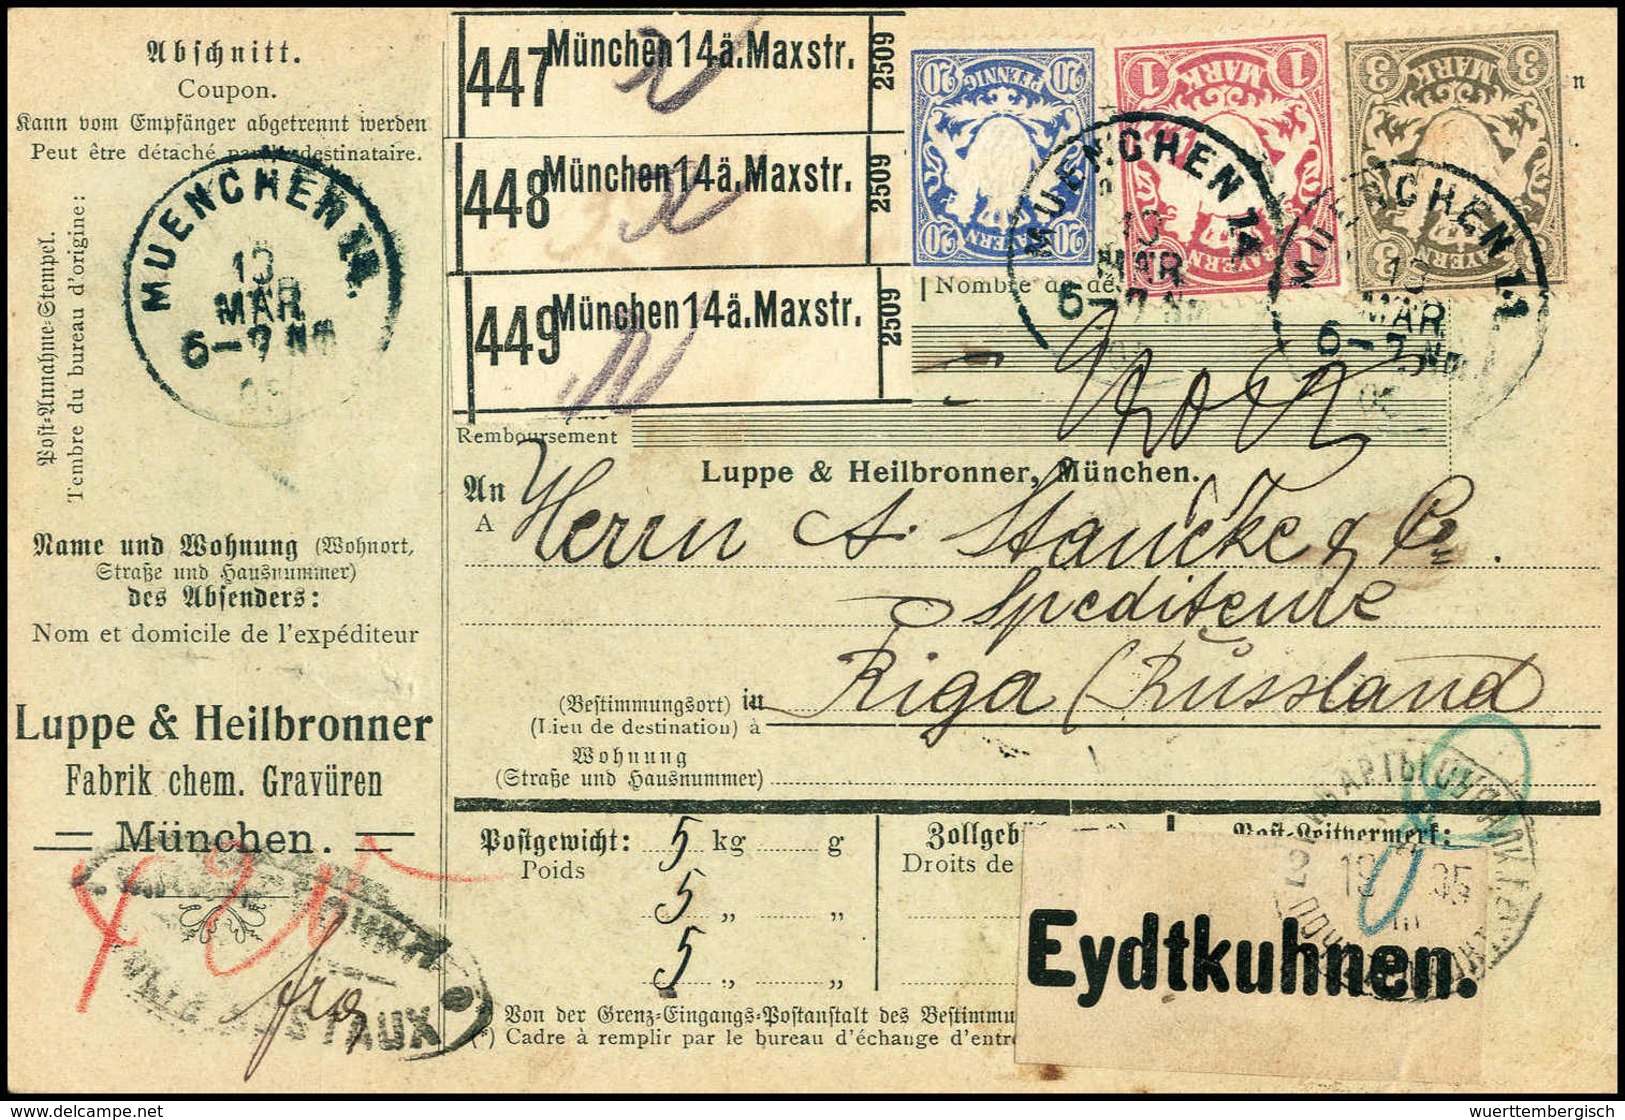 Abschnitt.
Coupon.
Kann vom Empfänger abgetrennt werden
Peut être détaché destinataire.
Post-Annahme-Stempel.
Tembre du bureau d'origine:
MUENCHEN 14.
13
MAR
6-7 Nm
05
447 München 14ä. Maxstr. 2509
448 München 14ä. Maxstr. 2509
449 München 14ä. Maxstr. 2509
20 PFENNIG 20
20 BAYERN 20
1 MARK 1
BAYERN
3 MARK 3
3 BAYERN 3
MUENCHEN 14
13
MAR
6-7 Nm
MUENCHEN 14
13
MAR
6-7 Nm
05
n
Nombre de de
Remboursement
Luppe & Heilbronner, München.
An
A
Herrn A. Stancke & Co.
Spediteure
Riga (Russland
(Bestimmungsort) in
(Lieu de destination) à
Wohnung
(Straße und Hausnummer)
Name und Wohnung (Wohnort,
Straße und Hausnummer)
des Absenders:
Nom et domicile de l'expéditeur
Luppe & Heilbronner
Fabrik chem. Gravüren
München.
Postgewicht: 5 kg g
Poids
5 „ „
5 „ „
Zollgeb
Droits de
Post-Leitvermerk:
Eydtkuhnen.
*) Von der Grenz-Eingangs-Postanstalt des Bestimmu
(*) Cadre à remplir par le bureau d'échange d'entr